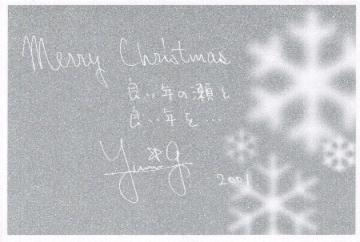 Merry Christmas
良い年の瀬と
良い年を...
2001